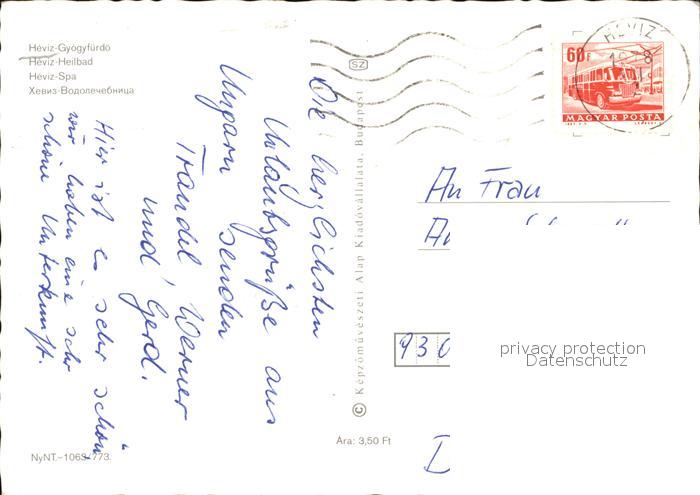 Hévíz-Gyógyfürdő
Hévíz-Heilbad
Hévíz-Spa
Хевиз-Водолечебница
Die herzlichsten
Urlaubsgrüße aus
Ungarn senden
Traudel, Werner
und Gerd.
Hier ist es sehr schön
wir haben eine sehr
schöne Unterkunft.
NyNT.–1063-773.
SZ
© Képzőművészeti Alap Kiadóvállalata, Budapest
Ára: 3,50 Ft
60F
MAGYAR POSTA
HÉVÍZ
An Frau
930
D
privacy protection
Datenschutz